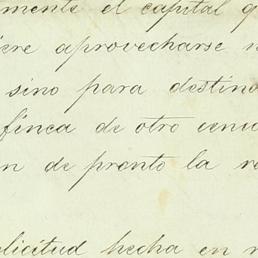 mente el capital q
iere aprovecharse n
sino para destino
finca de otro
n de pronto la re
licitud hecha en